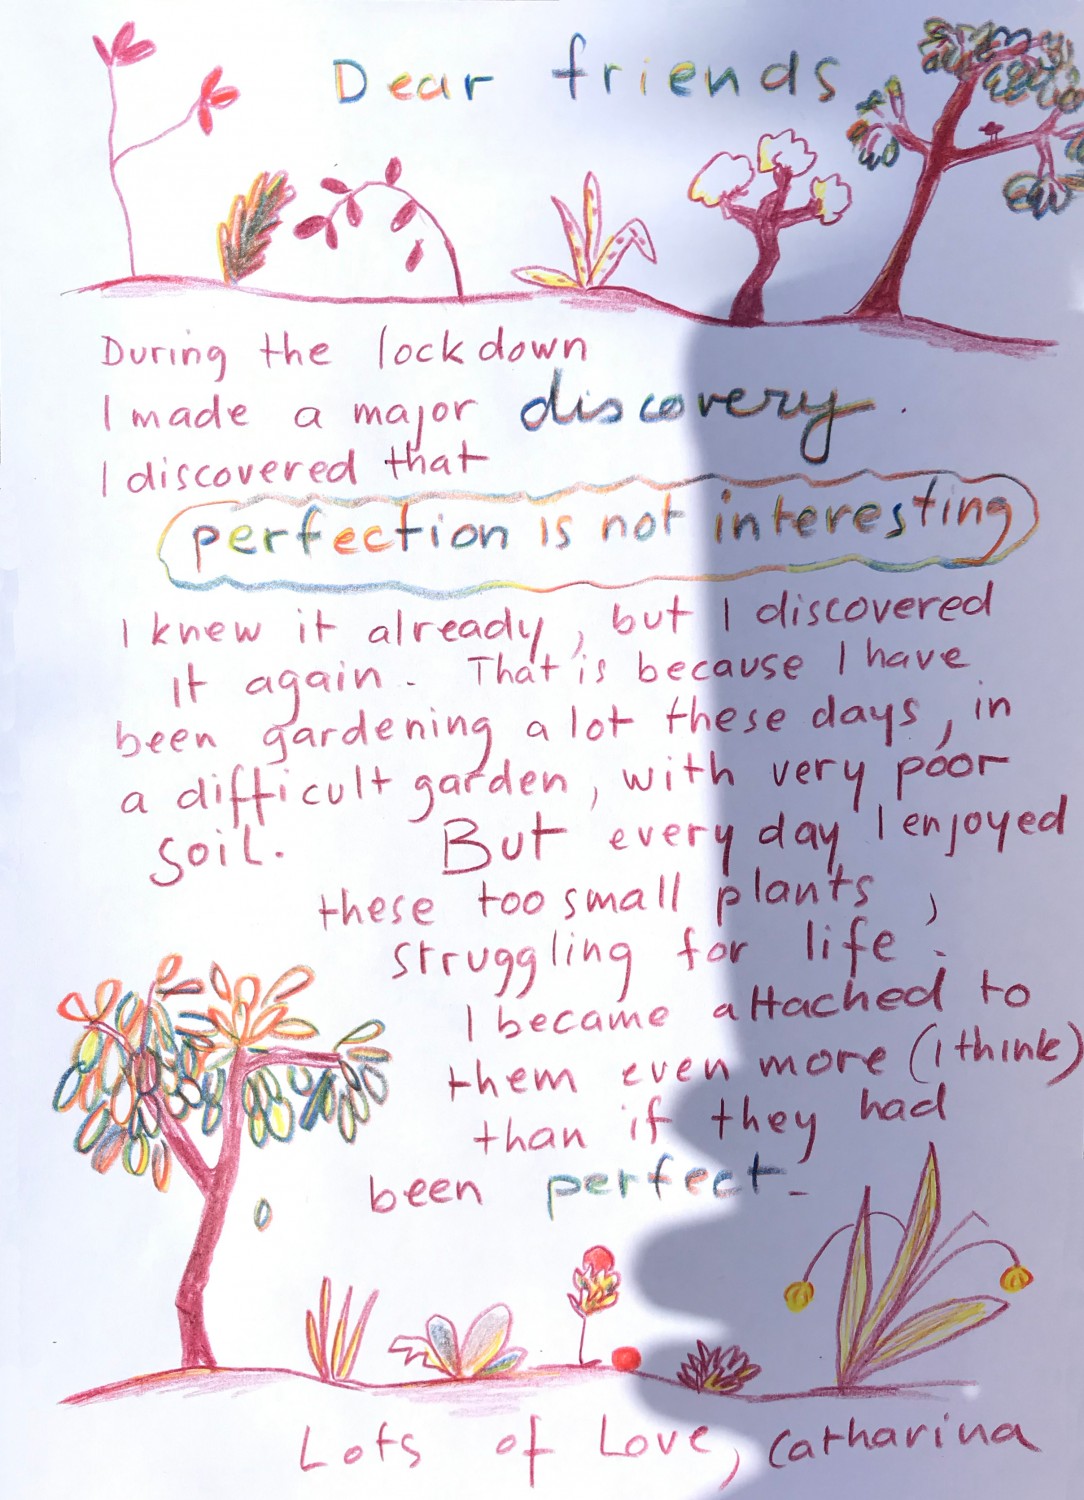 Dear friends
During the lockdown
I made a major discovery.
I discovered that
perfection is not interesting
I knew it already, but I discovered
it again. That is because I have
been gardening a lot these days, in
a difficult garden, with very poor
soil. But every day I enjoyed
these too small plants,
struggling for life.
I became attached to
them even more (I think)
than if they had
been perfect.
Lots of Love, Catharina